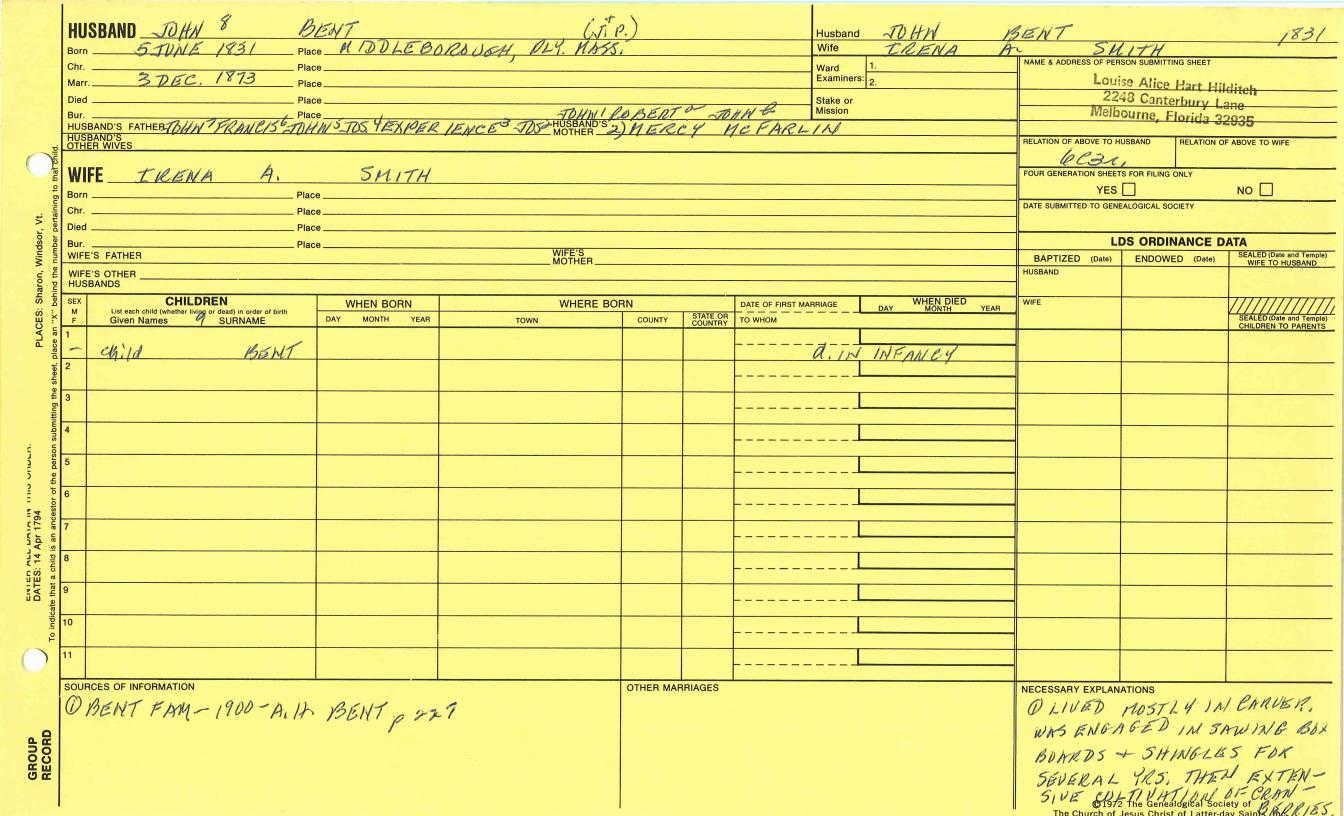 HUSBAND JOHN 8 BENT (J.P.)
Born 5 JUNE 1831 Place MIDDLEBOROUGH, PLY. MASS.
Chr. Place
Marr. 3 DEC. 1873 Place
Died Place
Bur. Place JOHN 1 ROBERT JOHN
HUSBAND'S FATHER JOHN 7 FRANCIS 6 JOHN 5 JOS 4 EXPERIENCE 3 JOS 2 HUSBAND'S MOTHER 2) MERCY McFARLIN
HUSBAND'S OTHER WIVES
Husband JOHN BENT 1831
Wife IRENA A. SMITH
Ward Examiners: 1.
2.
Stake or Mission
NAME & ADDRESS OF PERSON SUBMITTING SHEET
Louise Alice Hart Hilditch
2248 Canterbury Lane
Melbourne, Florida 32935
RELATION OF ABOVE TO HUSBAND RELATION OF ABOVE TO WIFE
6C3R
FOUR GENERATION SHEETS FOR FILING ONLY
YES NO
DATE SUBMITTED TO GENEALOGICAL SOCIETY
WIFE IRENA A. SMITH
Born Place
Chr. Place
Died Place
Bur. Place
WIFE'S FATHER WIFE'S MOTHER
WIFE'S OTHER HUSBANDS
LDS ORDINANCE DATA
BAPTIZED (Date) ENDOWED (Date) SEALED (Date and Temple) WIFE TO HUSBAND
HUSBAND
WIFE
SEALED (Date and Temple) CHILDREN TO PARENTS
SEX M F
CHILDREN
List each child (whether living or dead) in order of birth
Given Names 9 SURNAME
WHEN BORN
DAY MONTH YEAR
WHERE BORN
TOWN COUNTY STATE OR COUNTRY
DATE OF FIRST MARRIAGE
TO WHOM
WHEN DIED
DAY MONTH YEAR
1
– child BENT d. IN INFANCY
2
3
4
5
6
7
8
9
10
11
SOURCES OF INFORMATION
① BENT FAM - 1900 - A.H. BENT p 227
OTHER MARRIAGES
NECESSARY EXPLANATIONS
① LIVED MOSTLY IN CARVER.
WAS ENGAGED IN SAWING BOX
BOARDS + SHINGLES FOR
SEVERAL YRS. THEN EXTEN-
SIVE CULTIVATION OF CRAN-
BERRIES.
©1972 The Genealogical Society of
The Church of Jesus Christ of Latter-day Saints
PLACES: Sharon, Windsor, Vt.
To indicate that a child is an ancestor of the person submitting the sheet, place an "X" behind the number pertaining to that child.
ENTER ALL DATA IN THIS ORDER:
DATES: 14 Apr 1794
GROUP RECORD